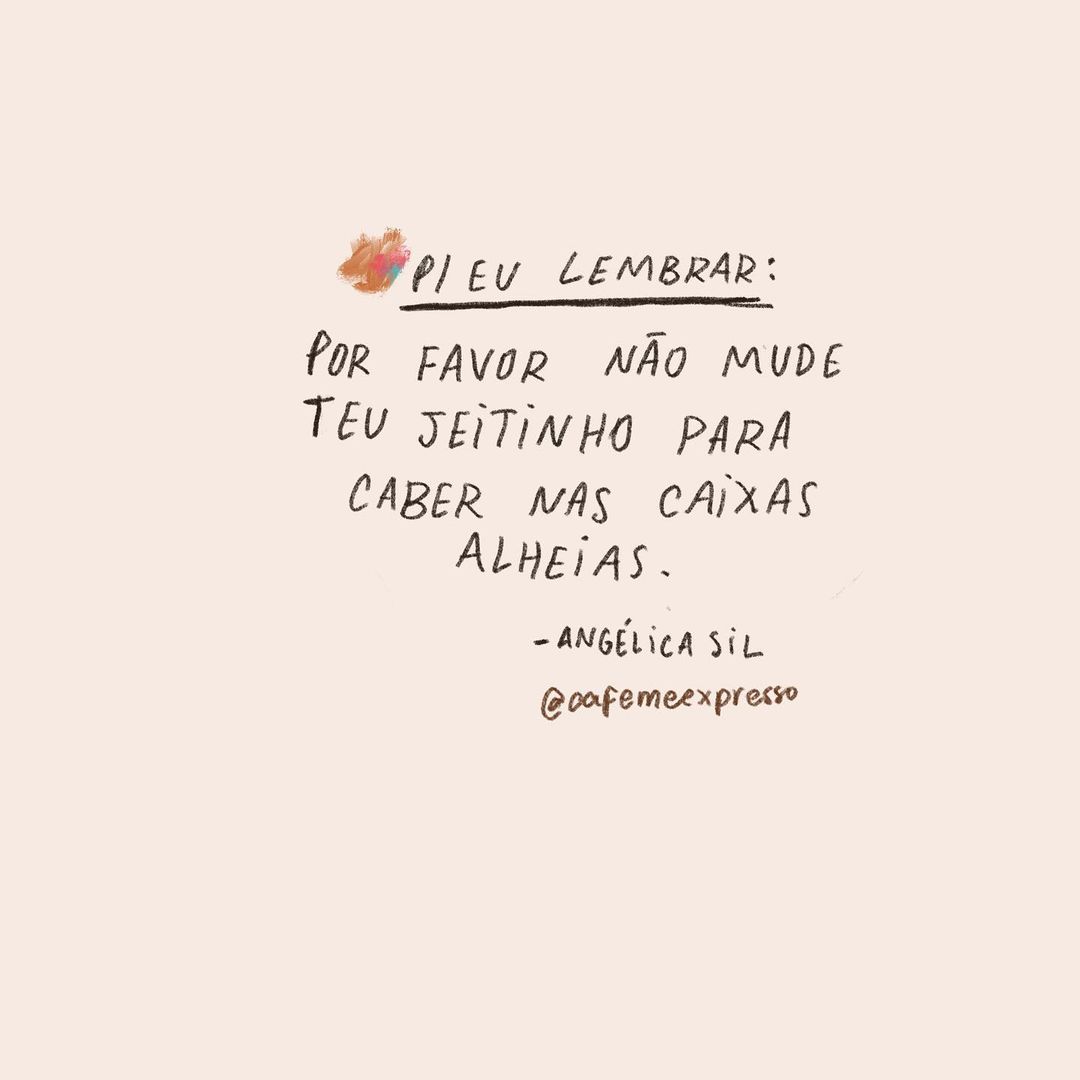 P/ EU LEMBRAR:
POR FAVOR NÃO MUDE
TEU JEiTiNHO PARA
CABER NAS CAiXAS
ALHEiAS.
-ANGÉLiCA SiL
@oafemeexpresso